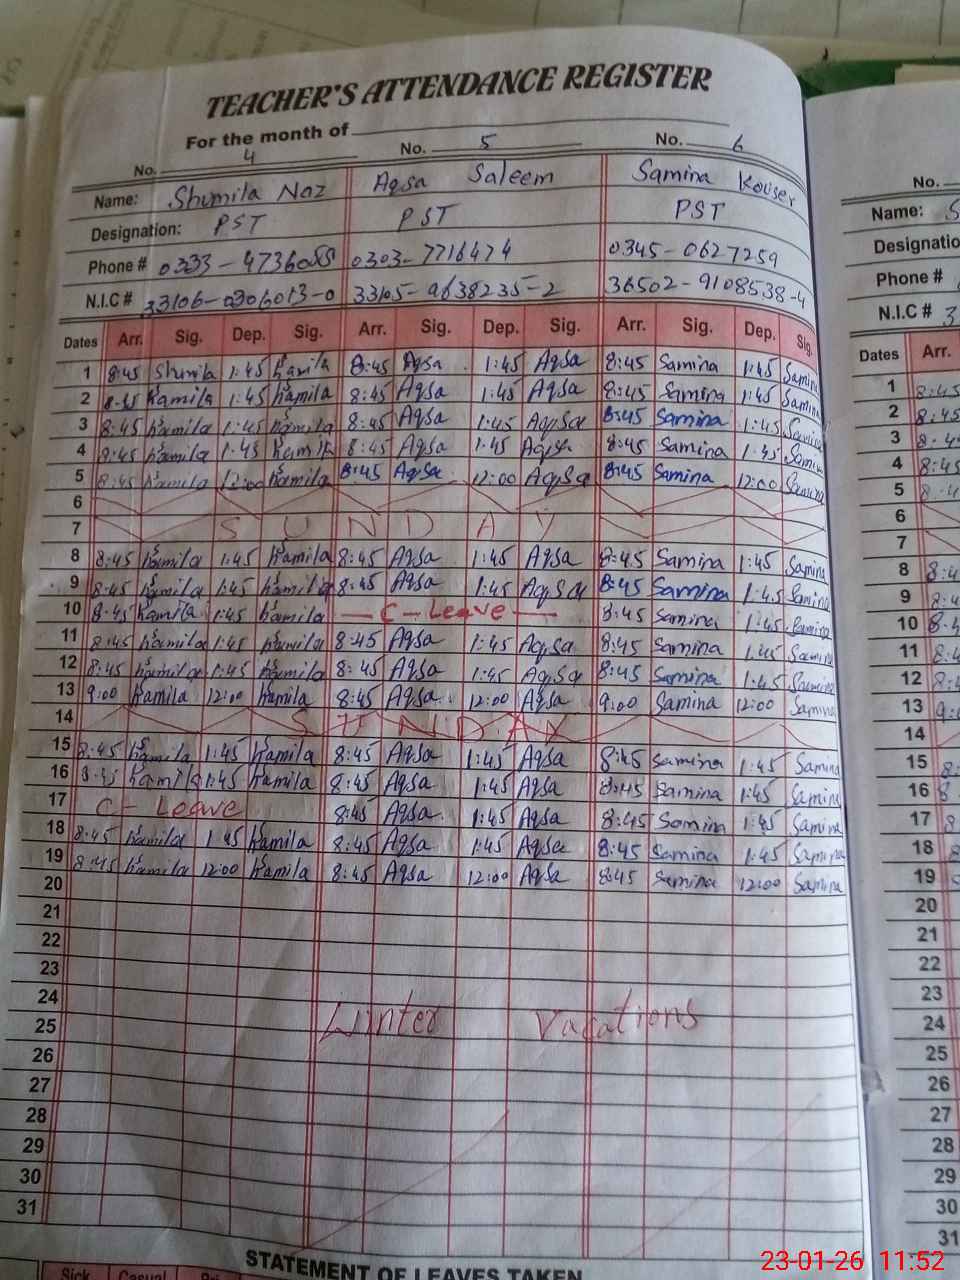 TEACHER'S ATTENDANCE REGISTER
For the month of
No. 4 No. 5 No. 6
Name: Shumila Naz Aqsa Saleem Samina Kouser
Designation: PST PST PST
Phone # 0333-4736058 0303-7716474 0345-0627259
N.I.C # 33106-0306013-0 33105-9638235-2 36502-9108538-4
Dates Arr. Sig. Dep. Sig. Arr. Sig. Dep. Sig. Arr. Sig. Dep. Sig.
1 8:45 Shmila 1:45 Kamila 8:45 Aqsa 1:45 Aqsa 8:45 Samina 1:45 Samina
2 8:45 Kamila 1:45 Kamila 8:45 Aqsa 1:45 Aqsa 8:45 Samina 1:45 Samina
3 8:45 Kamila 1:45 Kamila 8:45 Aqsa 1:45 Aqsa 8:45 Samina 1:45 Samina
4 8:45 Kamila 1:45 Kamila 8:45 Aqsa 1:45 Aqsa 8:45 Samina 1:45 Samina
5 8:45 Kamila 12:00 Kamila 8:45 Aqsa 12:00 Aqsa 8:45 Samina 12:00 Samina
6
7 SUNDAY
8 8:45 Kamila 1:45 Kamila 8:45 Aqsa 1:45 Aqsa 8:45 Samina 1:45 Samina
9 8:45 Kamila 1:45 Kamila 8:45 Aqsa 1:45 Aqsa 8:45 Samina 1:45 Samina
10 8:45 Kamila 1:45 Kamila — C - Leave — 8:45 Samina 1:45 Samina
11 8:45 Kamila 1:45 Kamila 8:45 Aqsa 1:45 Aqsa 8:45 Samina 1:45 Samina
12 8:45 Kamila 1:45 Kamila 8:45 Aqsa 1:45 Aqsa 8:45 Samina 1:45 Samina
13 9:00 Kamila 12:00 Kamila 8:45 Aqsa 12:00 Aqsa 9:00 Samina 12:00 Samina
14 SUNDAY
15 8:45 Kamila 1:45 Kamila 8:45 Aqsa 1:45 Aqsa 8:45 Samina 1:45 Samina
16 8:45 Kamila 1:45 Kamila 8:45 Aqsa 1:45 Aqsa 8:45 Samina 1:45 Samina
17 C - Leave 8:45 Aqsa 1:45 Aqsa 8:45 Samina 1:45 Samina
18 8:45 Kamila 1:45 Kamila 8:45 Aqsa 1:45 Aqsa 8:45 Samina 1:45 Samina
19 8:45 Kamila 12:00 Kamila 8:45 Aqsa 12:00 Aqsa 8:45 Samina 12:00 Samina
20
21
22
23
24
25 Winter Vacations
26
27
28
29
30
31
STATEMENT OF LEAVES TAKEN
Sick Casual
No.
Name: S
Designatio
Phone #
N.I.C # 3
Dates Arr.
1 8:45
2 8:45
3 8:4
4 8:45
5 8:4
6
7
8 8:4
9 8:4
10 8:4
11 8:4
12 8:4
13 9:0
14
15 8:
16 8
17 8
18 8
19 8
20
21
22
23
24
25
26
27
28
29
30
31
23-01-26 11:52